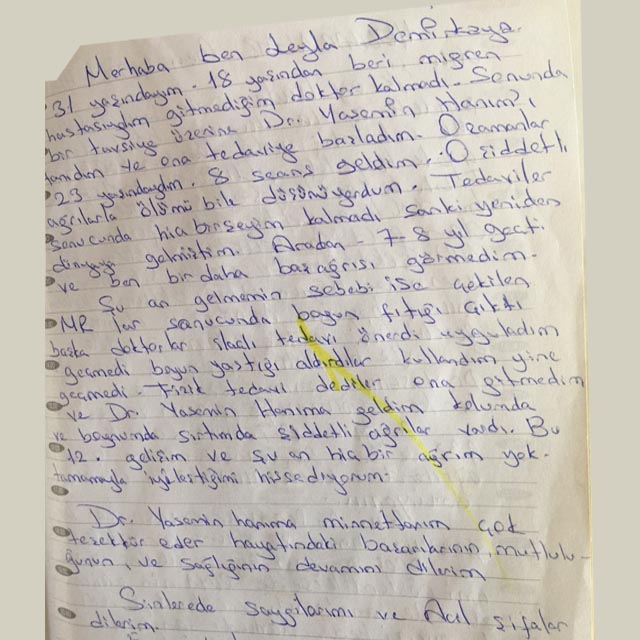 Merhaba ben Leyla Demirkaya.
31 yaşındayım. 18 yaşından beri migren
hastasıydım gitmediğim doktor kalmadı. Sonunda
bir tavsiye üzerine Dr. Yasemin Hanım'ı
tanıdım ve ona tedaviye başladım. O zamanlar
23 yaşındaydım. 8 seans geldim. O şiddetli
ağrılarla ölümü bile düşünüyordum. Tedaviler
sonucunda hiçbirşeyim kalmadı sanki yeniden
dünyaya gelmiştim. Aradan 7-8 yıl geçti
ve ben bir daha başağrısı görmedim.
Şu an gelmemin sebebi ise çekilen
MR lar sonucunda boyun fıtığı çıktı
başka doktorlar ilaçlı tedavi önerdi uyguladım
geçmedi boyun yastığı aldırdılar kullandım yine
geçmedi. Fizik tedavi dediler ona gitmedim
ve Dr. Yasemin Hanıma geldim kolumda
ve boynumda sırtımda şiddetli ağrılar vardı. Bu
12. gelişim ve şu an hiçbir ağrım yok.
tamamıyla iyileştiğimi hissediyorum.
Dr. Yasemin hanıma minnettarım çok
teşekkür eder hayatındaki başarılarının, mutlulu-
ğunun, ve sağlığının devamını dilerim
Sizlerede saygılarımı ve Acil şifalar
dilerim.